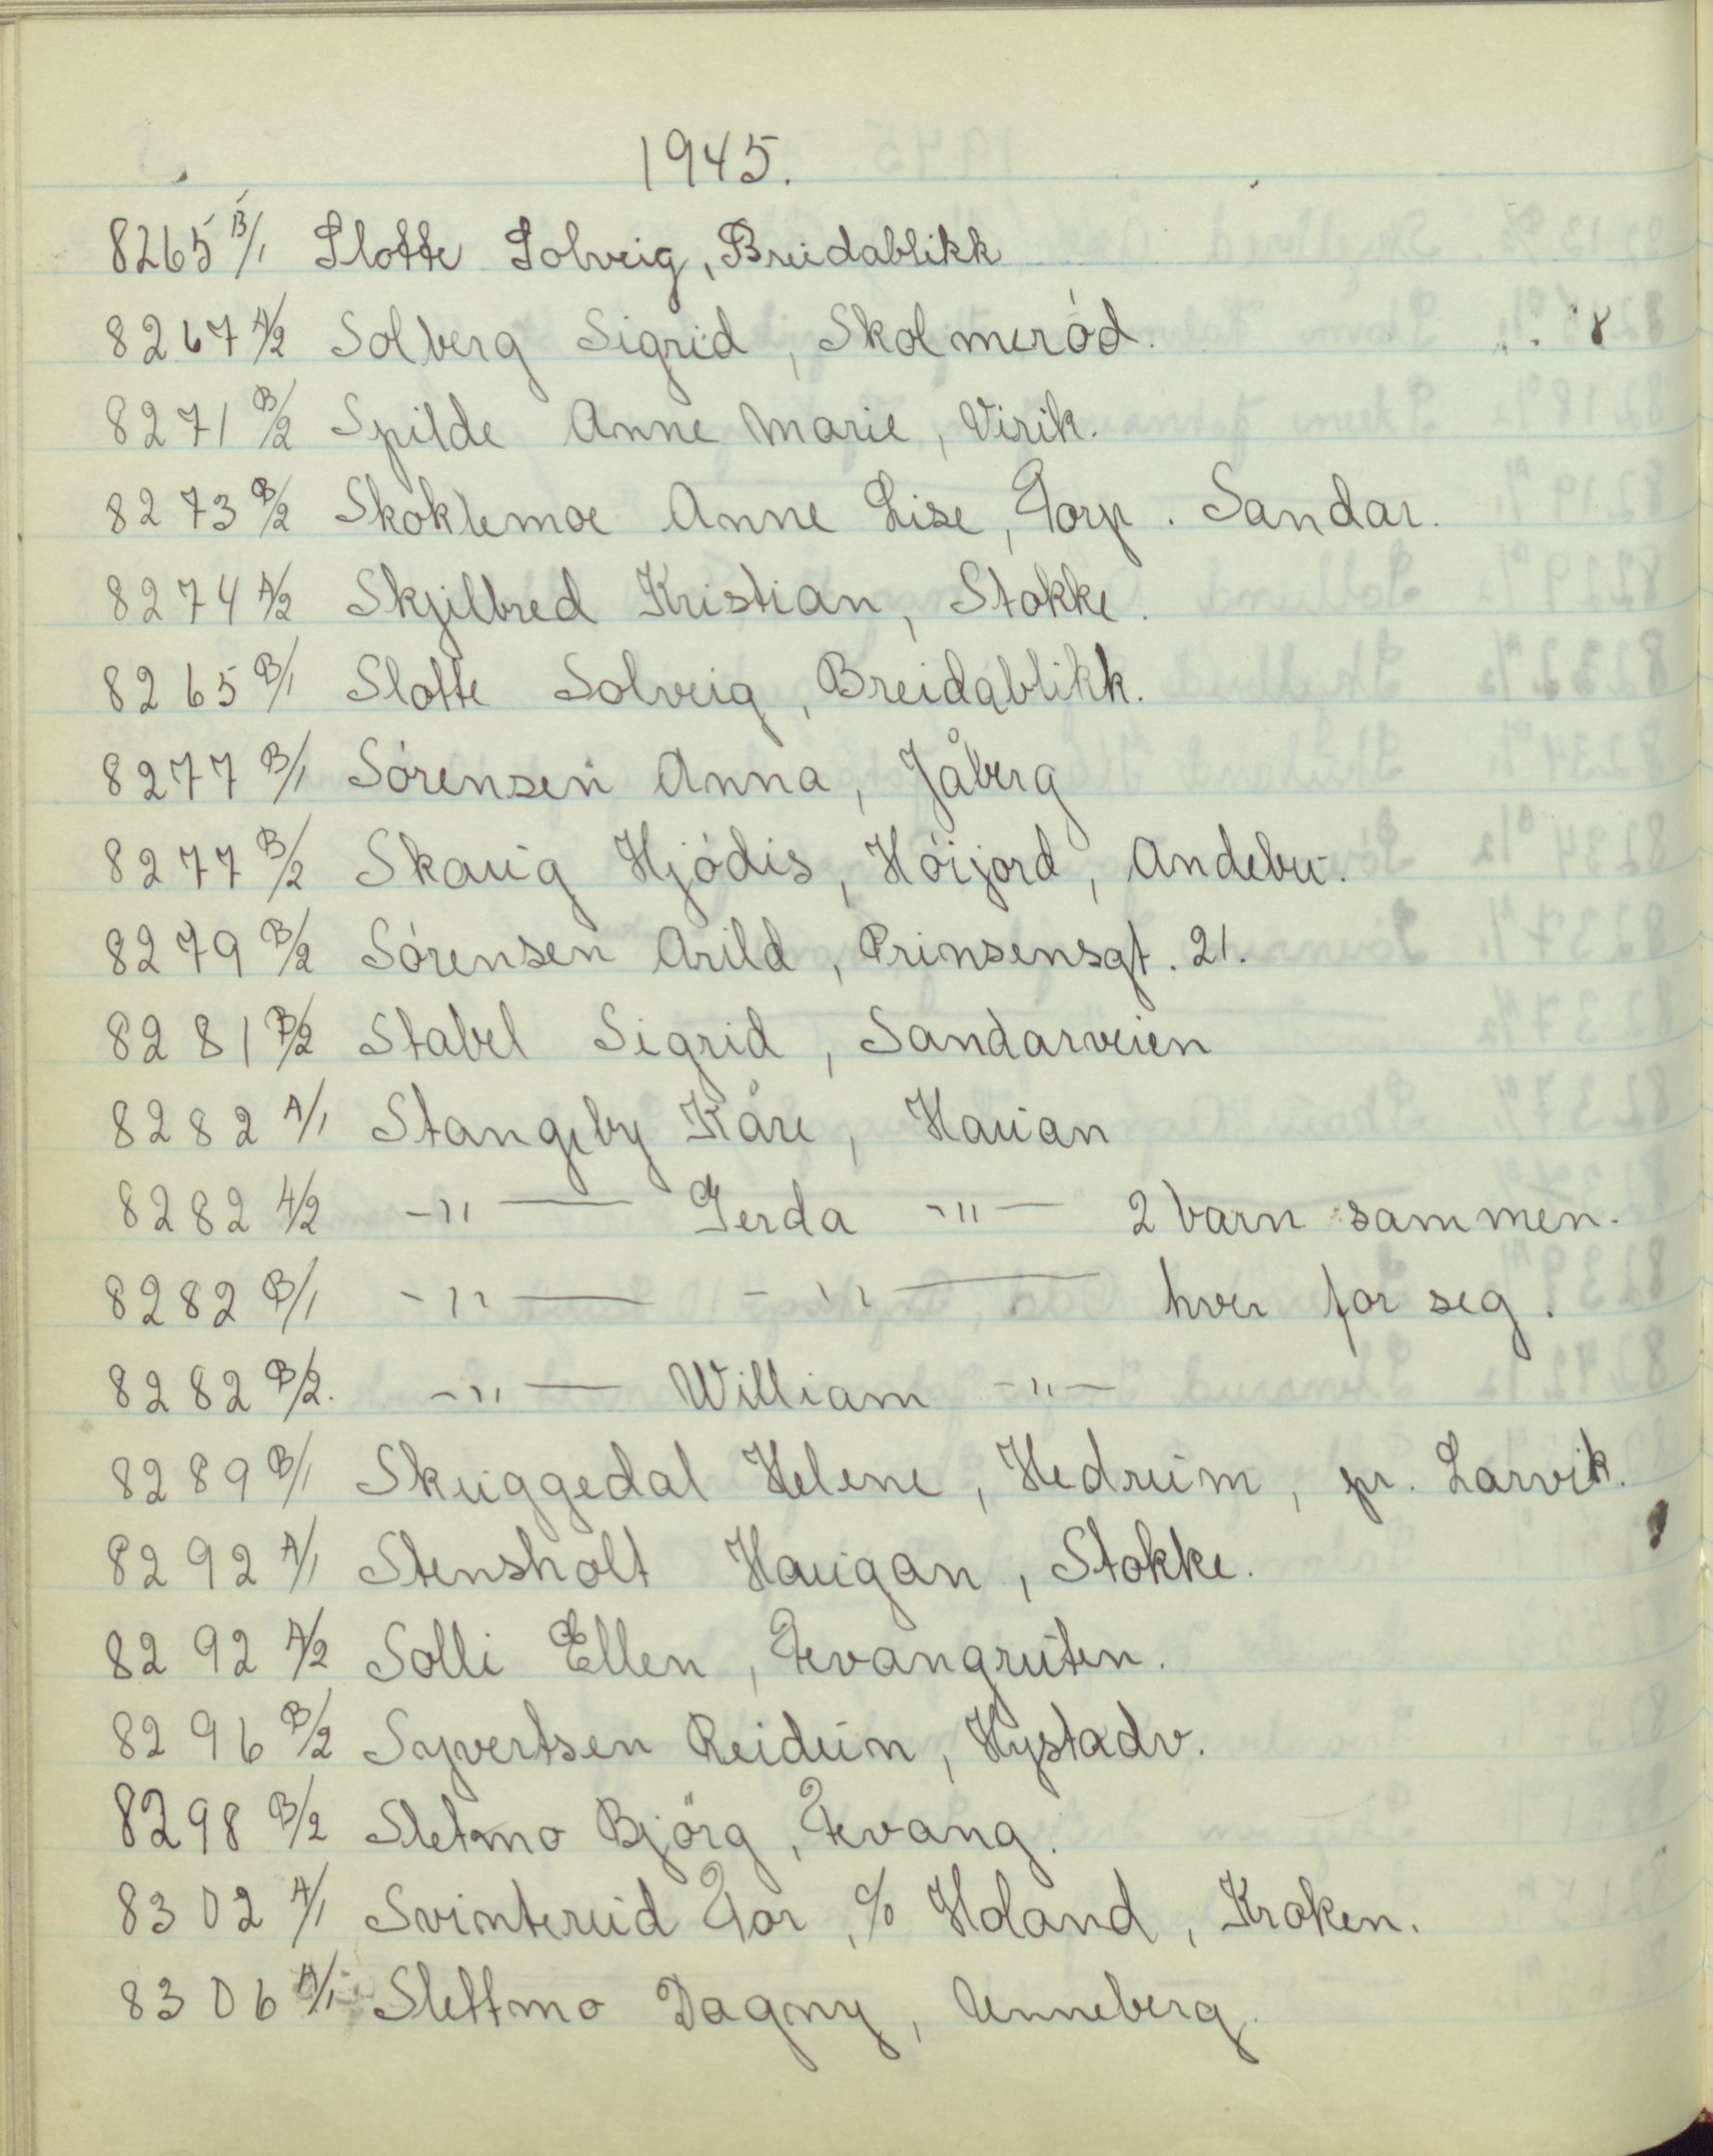 1945.
8265 B/1 Slotte Solveig, Breidablikk
8267 A/2 Solberg Sigrid, Skolmeród.
8271 B/2 Spilde Anne Marie, Virik.
8273 B/2 Skoklemoe Anne Lise, Torp. Sandar.
8274 A/2 Skjilbred Kristian, Stokke.
8265 B/1 Slotte Solveig, Breidablikk.
8277 B/1 Sórensen Anna, Jåberg
8277 B/2 Skauig Hjódis, Hóijord, Andebu.
8279 B/2 Sórensen Arild, Prinsensgt. 21.
8281 B/2 Stabel Sigrid, Sandarveien
8282 A/1 Stangeby Kåre, Hauan
8282 A/2 -"- Gerda -"- 2 barn sammen.
8282 B/1 -"- -"- hver for seg.
8282 B/2. -"- William -"-
8289 B/1 Skuggedal Helene, Hedrum, pr. Larvik.
8292 A/1 Stensholt Haugan, Stokke.
8292 A/2 Solli Ellen, Fevangruten.
8296 B/2 Syvertsen Reidun, Hystadv.
8298 B/2 Sletmo Björg, Fevang.
8302 A/1 Svinterud Tor, c/o Holand, Kroken.
8306 A/1 Slettmo Dagny, Unneberg.